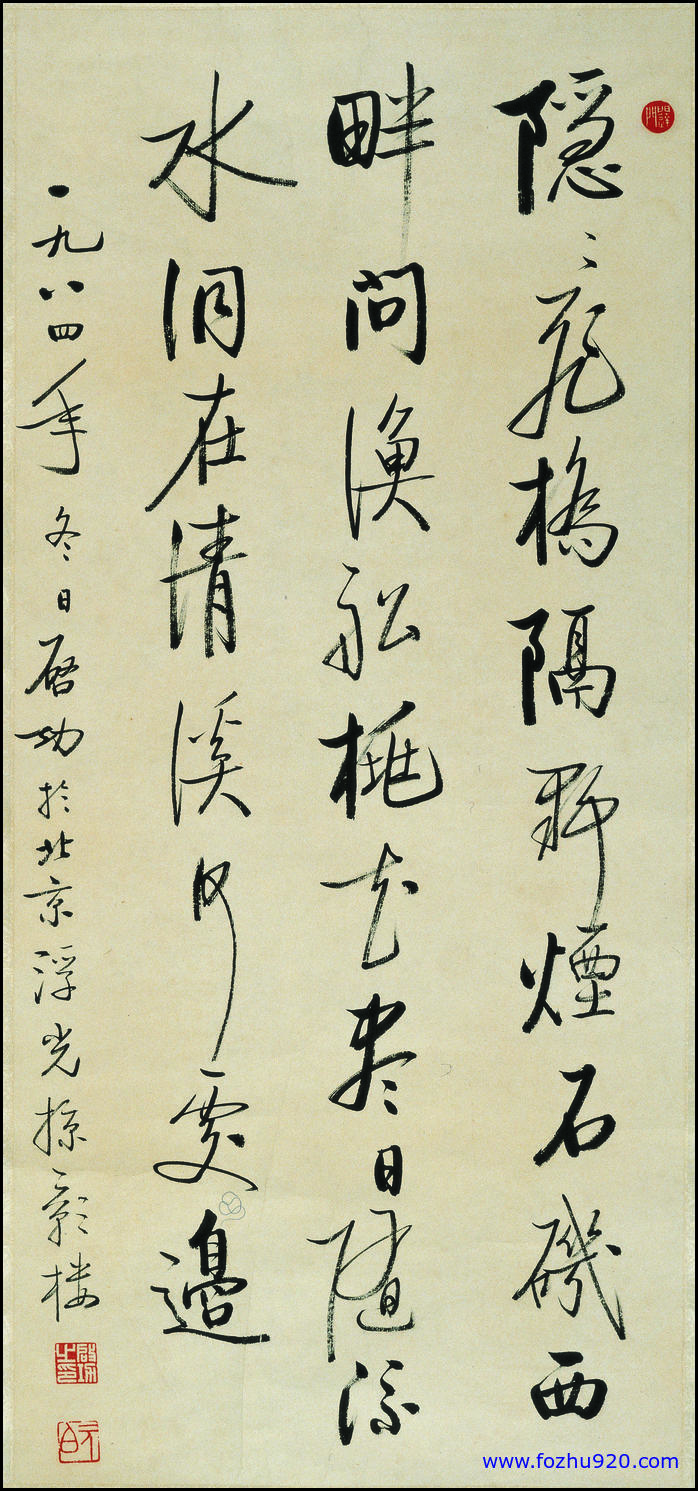 隐〻飛橋隔野煙石磯西
畔问渔船桃花尽日随流
水洞在清溪何处邊
一九八四年冬日启功於北京浮光掠影楼
www.fozhu920.com